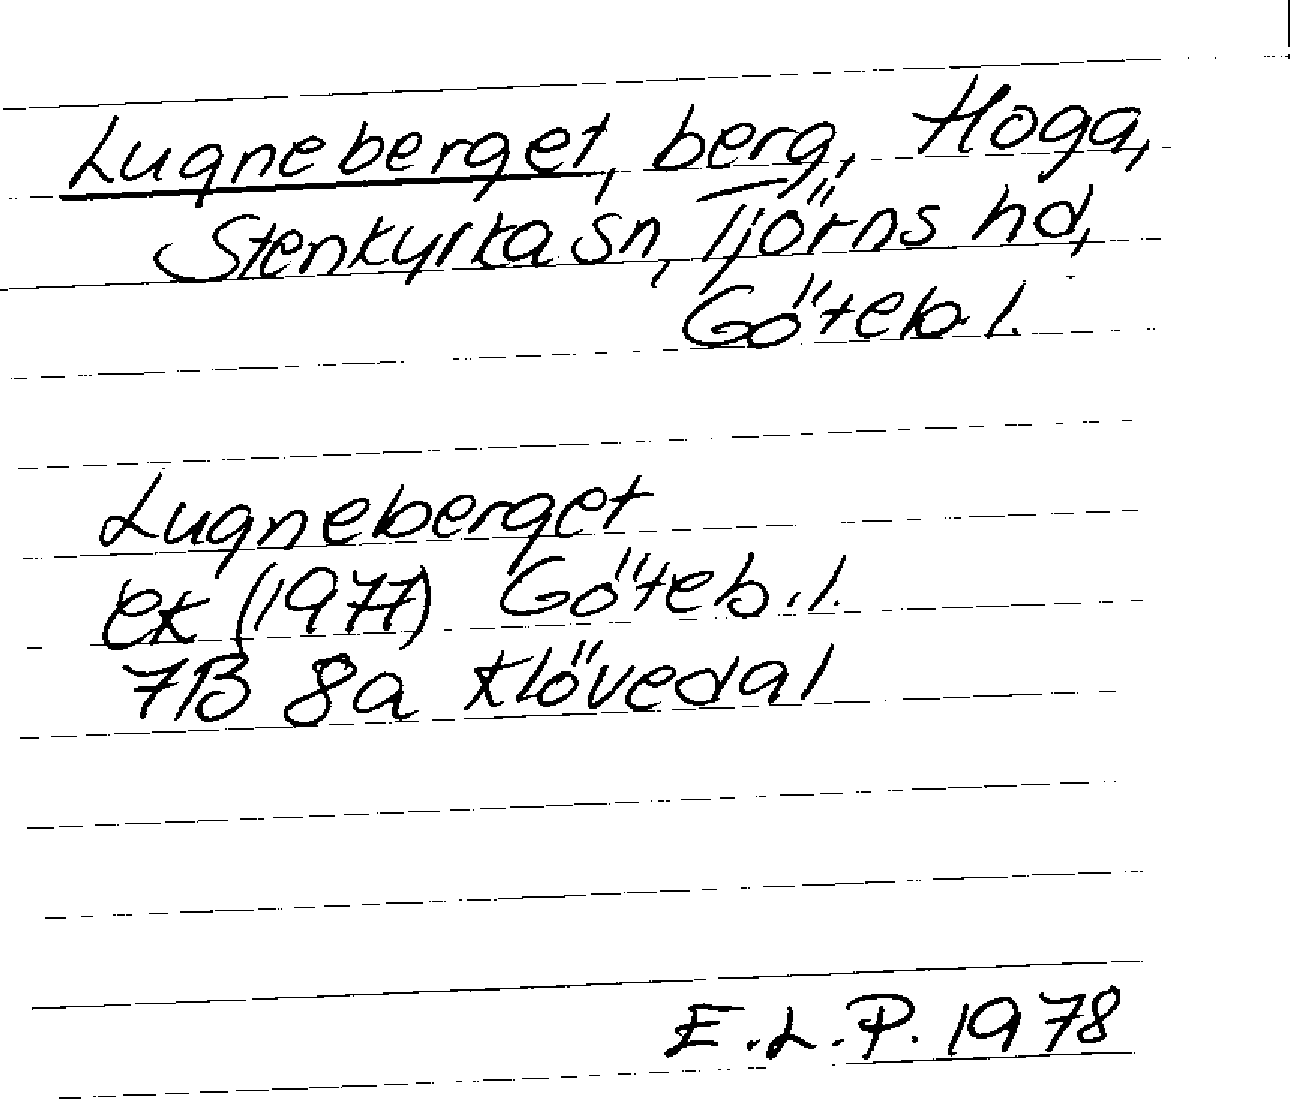 Lugneberget, berg, Hoga,
Stenkyrka sn, Tjörns hd,
Göteb. l.
Lugneberget
ek (1977) Göteb. l.
7B 8a Klövedal
E.L.P. 1978